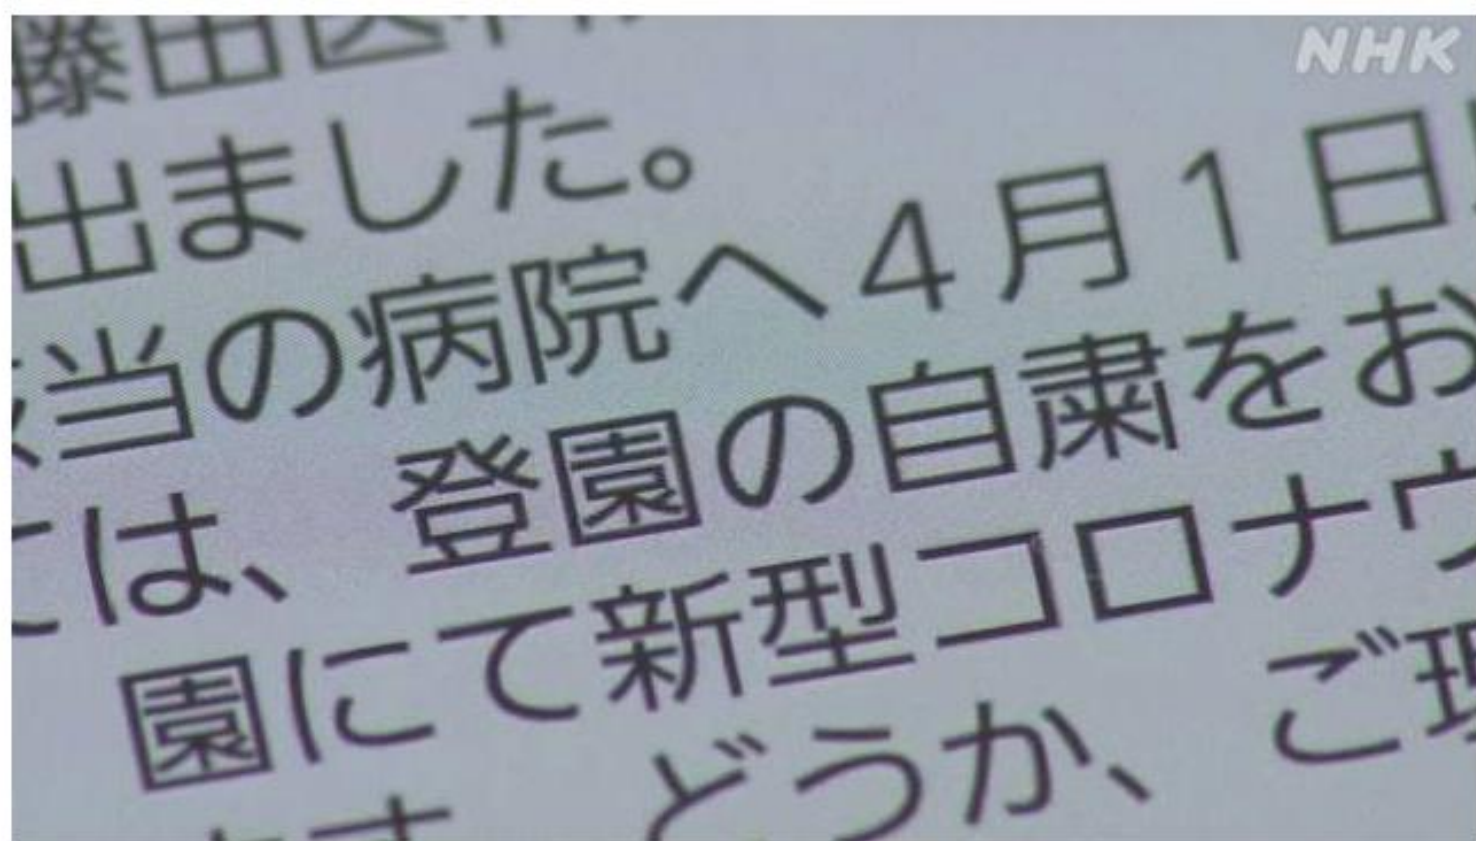 NHK
藤田医科
出ました。
該当の病院へ4月1日
には、登園の自粛をお
園にて新型コロナウ
どうか、ご理